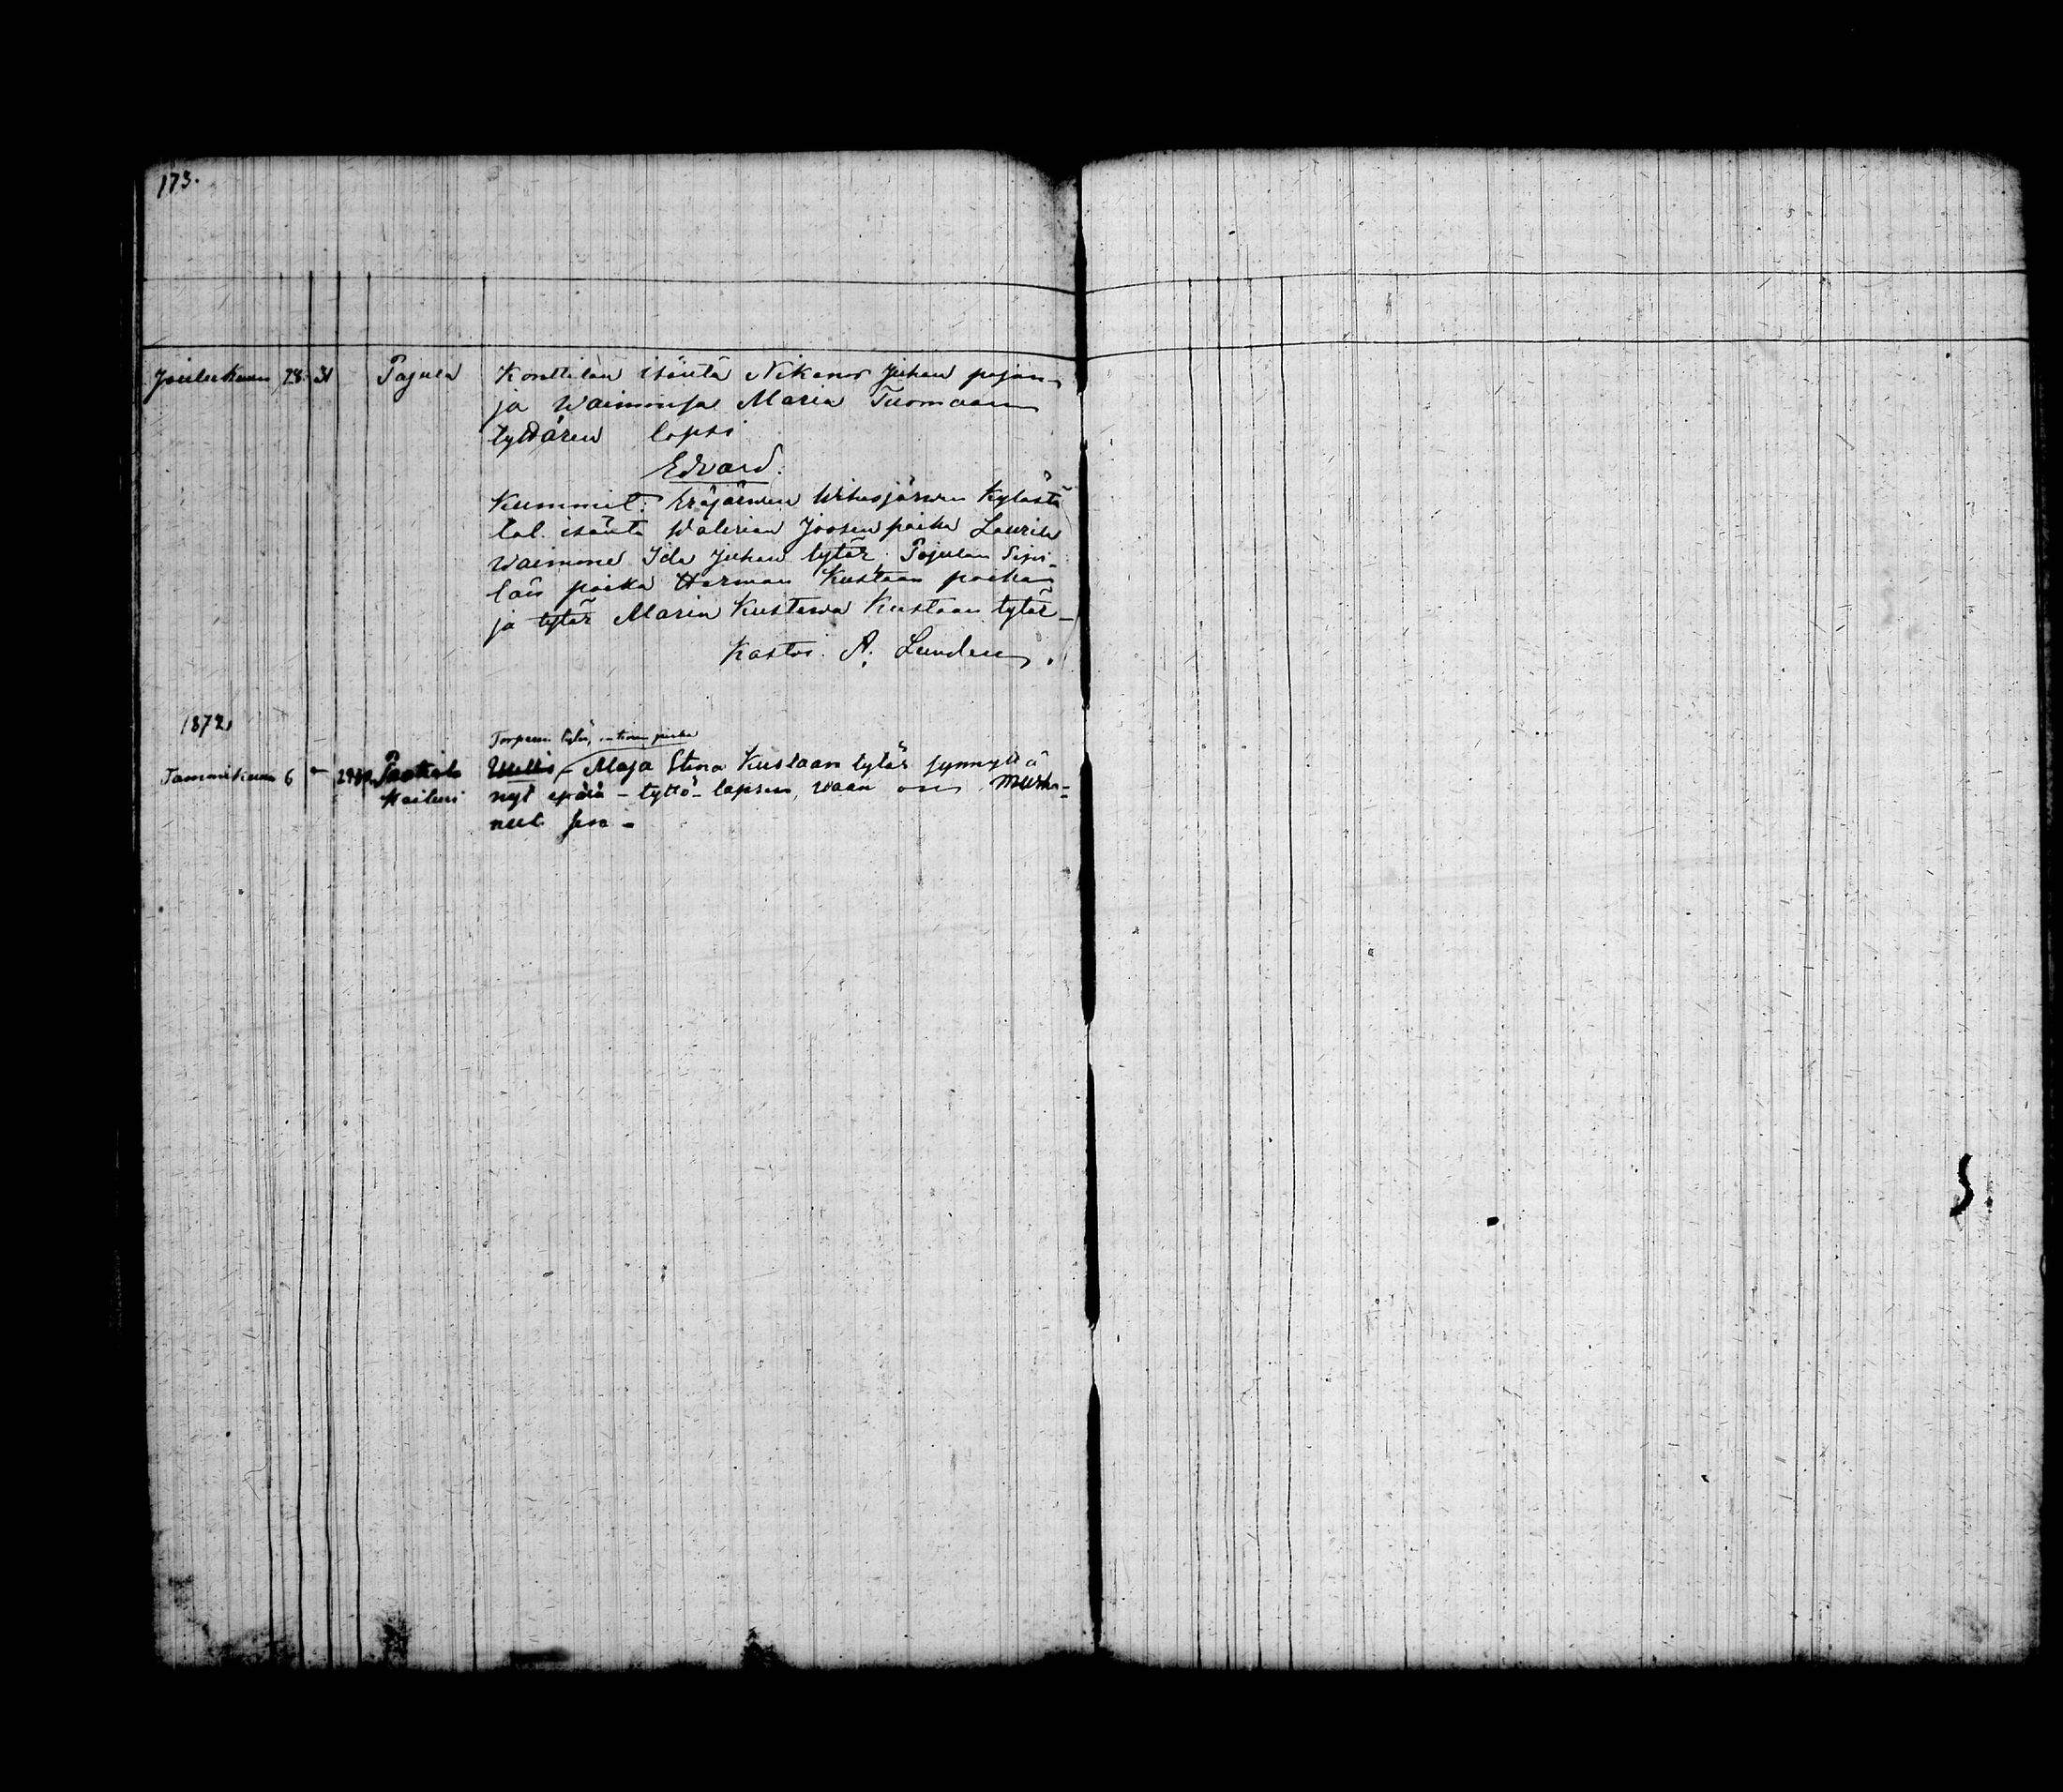 173.
Joulukuun 28. 31 Pajula Konttilan isäntä Nikanor Juhan pojan
ja Waimonsa Maria Tuomaan
tyttären lapsi
Edvard.
Kummit: Eräjärwen Wihasjärwen Kylästä
tal. isäntä Walerian Joosen poika Laurila
Waimone Ida Juhan tytär. Pajulan Sipi-
län poika Herman Kustaan poika
ja tytär Maria Kustawa Kustaan tytär_
Kastoi. A. Lunden.
1872
Torpan tytär,
Tammikuun 6 - Maja Stina Kustaan tytär synnyttä
nyt epärä - tyttö - lapsen, waan on murha-
nut sen -
S.